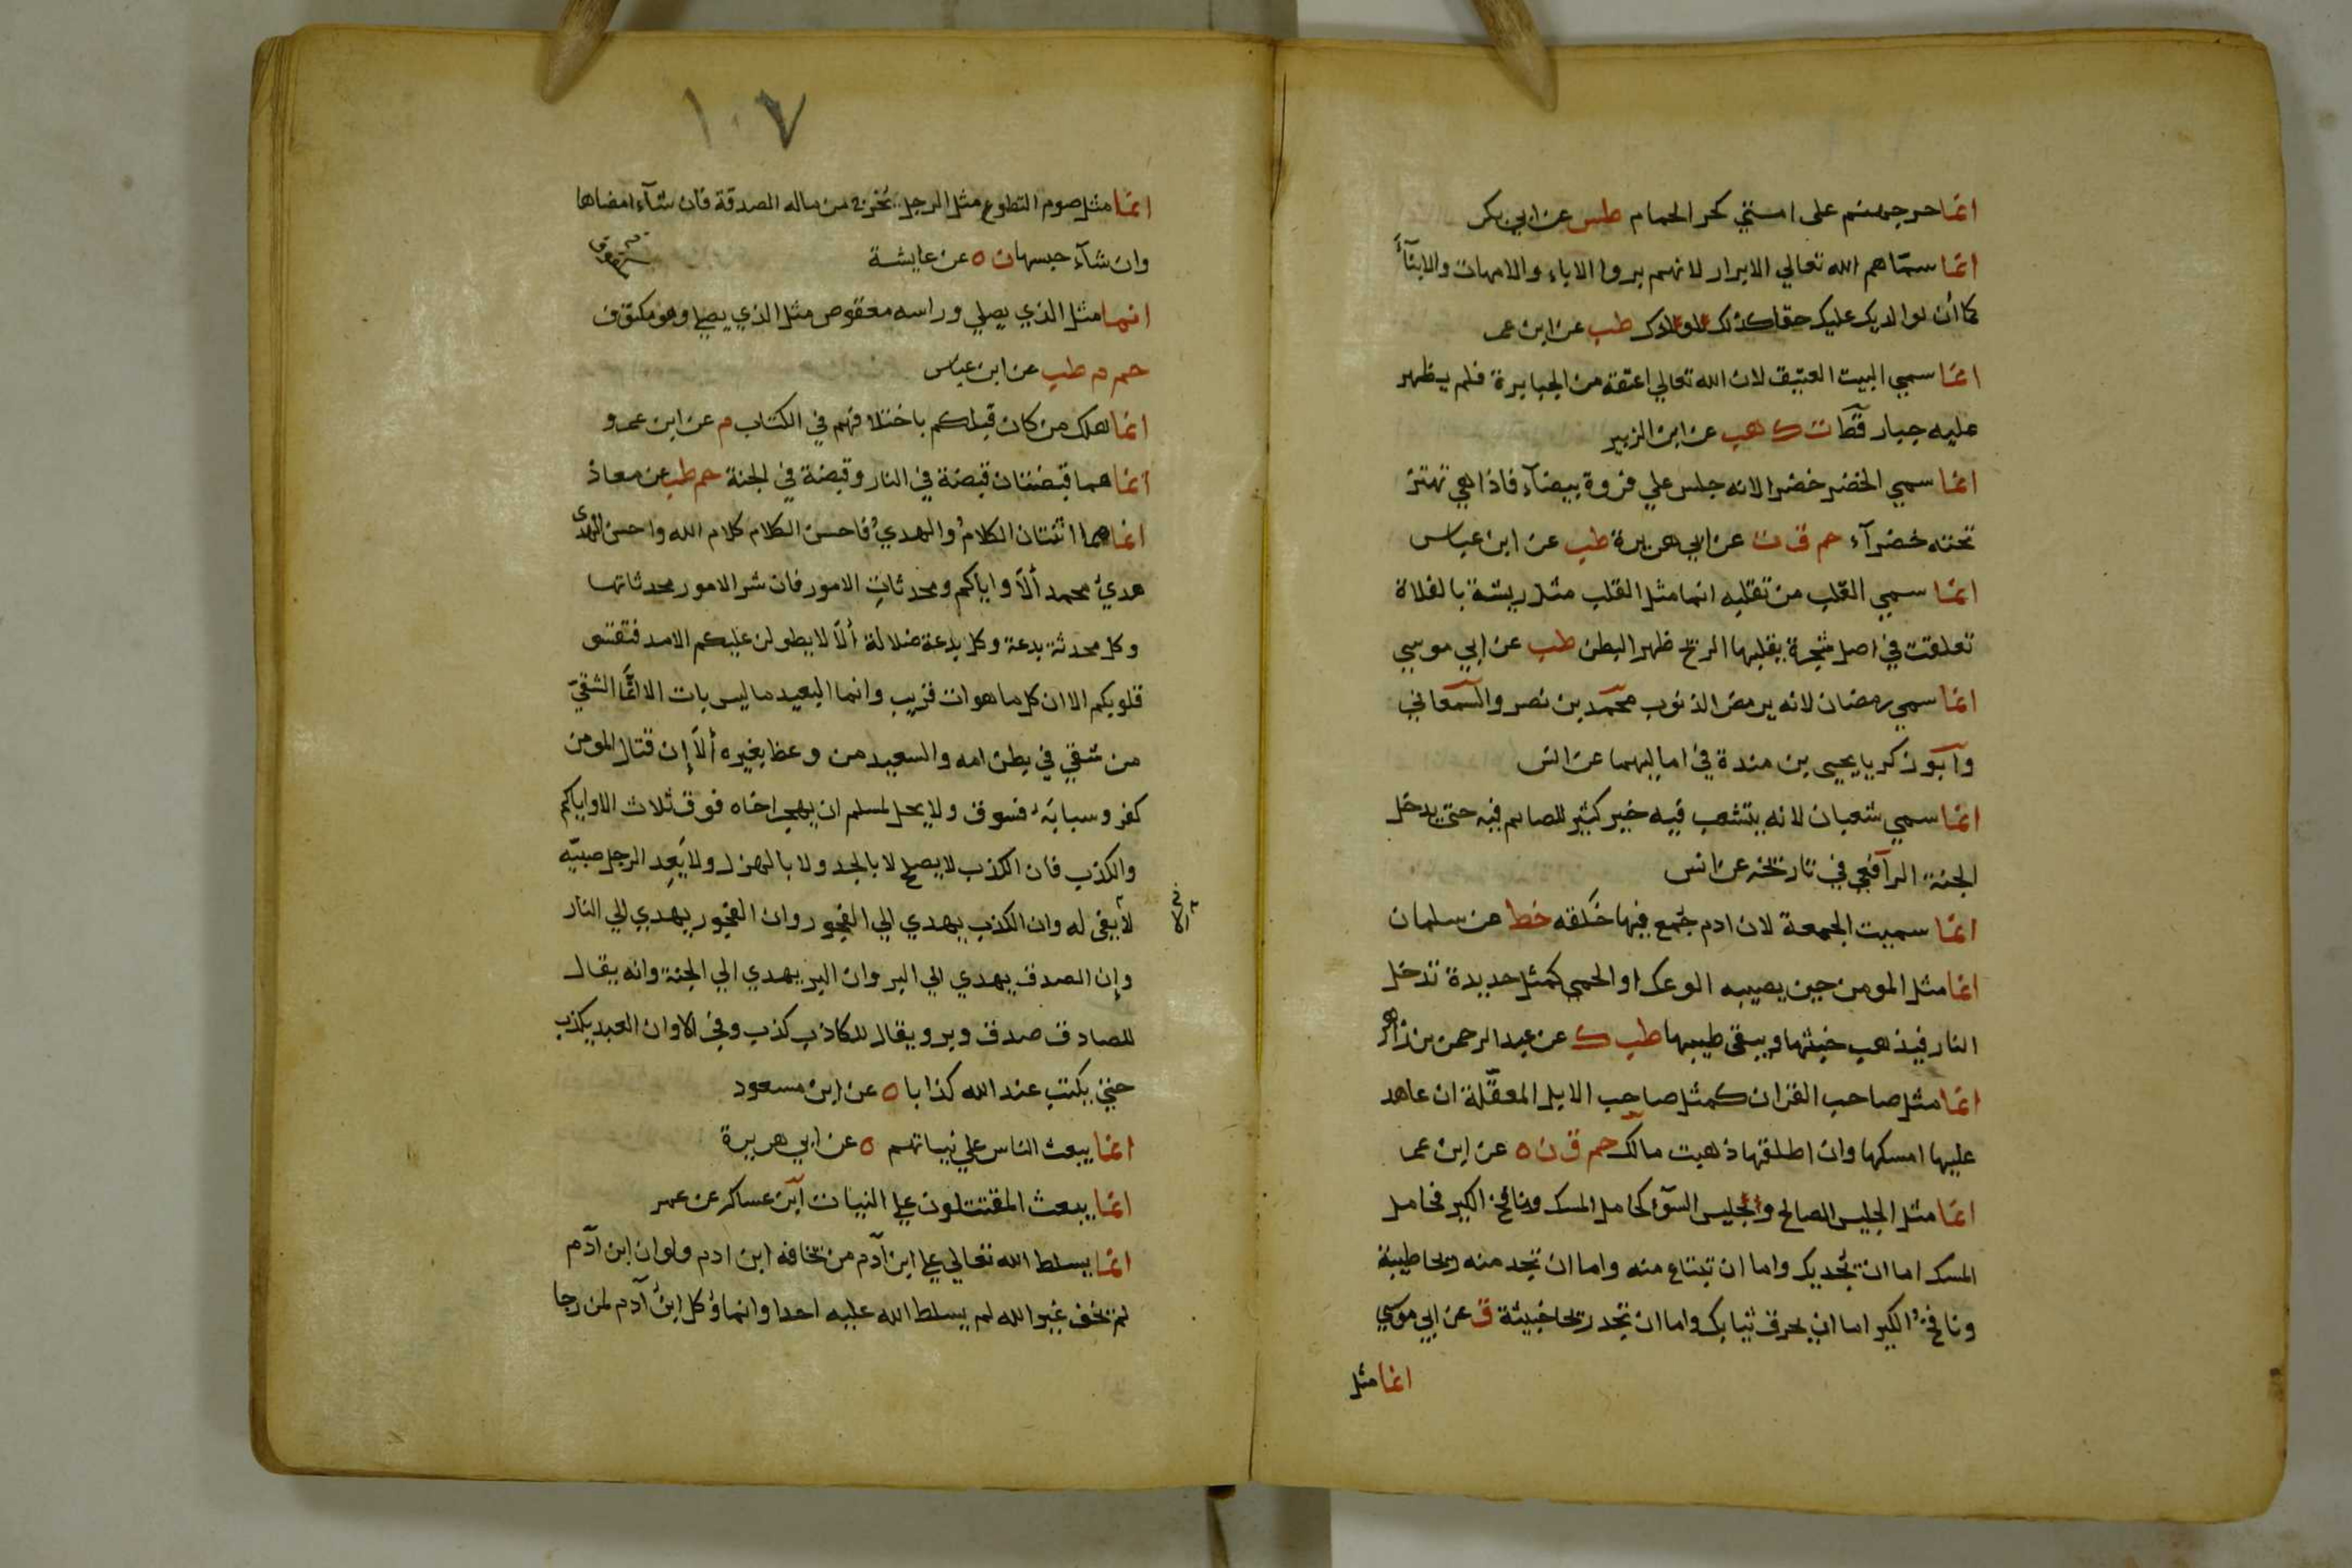 انما حر جهنم على امتي كحر الحمام طس عن ابي بكر
انما سماهم الله تعالي الابرار لانهم بروا الاباء والامهات والابنآء
كما أن لوالديك عليك حقا كذلك لولدك طب عن ابن عمر
انما سمي البيت العتيق لان الله تعالي اعتقه من الجبابرة فلم يظهر
عليه جبار قط ت ك هب عن ابن الزبير
انما سمي الخضر خضرا لانه جلس علي فروة بيضآء فاذا هي تهتز
تحته خضرآء حم ق ت عن ابي هريرة طب عن ابن عباس
انما سمي القلب من تقلبه انما مثل القلب مثل ريشة بالفلاة
تعلقت في اصل شجرة يقلبها الريح ظهر البطن طب عن ابي موسي
انما سمي رمضان لانه يرمض الذنوب محمد بن نصر والسمعاني
وابو زكريا يحيى بن مندة في اماليهما عن انس
انما سمي شعبان لانه يتشعب فيه خير كثير للصايم فيه حتي يدخل
الجنة الرافعي في تاريخه عن انس
انما سميت الجمعة لان ادم جُمع فيها خَلقه خط عن سلمان
انما مثل المومن حين يصيبه الوعك او الحمي كمثل حديدة تدخل
النار فيذهب خبثها ويبقى طيبها طب ك عن عبد الرحمن بن ازهر
انما مثل صاحب القران كمثل صاحب الابل المعقّلة ان عاهد
عليها امسكها وان اطلقها ذهبت مالك حم ق ن ه عن ابن عمر
انما مثل الجليس الصالح والجليس السوٓء كحامل المسك ونافخ الكير فحامل
المسك اما ان يُحديك واما ان تبتاع منه واما ان تجد منه ريحا طيبة
ونافخُ الكير اما ان يحرق ثيابك واما ان تجد ريحا خبيثة ق عن ابي موسي
انما مثل
١٠٧
انما مثل صوم التطوع مثل الرجل يُخرج من ماله الصدقة فان شآء امضاها
وان شآء حبسها ن ه عن عايشة
انما مثل الذي يصلي وراسه معقوص مثل الذي يصلي وهو مكتوف
حم م طب عن ابن عباس
انما هلك من كان قبلكم باختلافهم في الكتاب م عن ابن عمرو
انما هما قبضتان قبضة في النار وقبضة في الجنة حم طب عن معاذ
انما هما اثنتان الكلامُ والهديُ فاحسن الكلام كلام الله واحسن الهدى
هديُ محمد ألا واياكم ومحدثاتِ الامور فان شر الامور محدثاتها
وكل محدثة بدعة وكل بدعة ضلالة ألا لا يطولن عليكم الامد فتقسو
قلوبكم الا ان كل ما هو ات قريب وانما البعيد ما ليس بات الا انما الشقيّ
من شقي في بطن امه والسعيد من وعظ بغيره ألا إن قتال المومن
كفر وسبابَهُ فسوق ولا يحل لمسلم ان يهجر اخاه فوق ثلاث الا واياكم
والكذب فان الكذب لا يصلح لا بالجد ولا بالهزل ولا يَعِد الرجل صبيّه
لا يفى له وان الكذب يهدي الي الفجور وان الفجور يهدي الي النار
وإن الصدق يهدي الي البر وان البر يهدي الي الجنة وانه يقال
للصادق صدق وبر ويقال للكاذب كذب وفجر الا وان العبد يكذب
حتي يكتب عند الله كذابا ه عن ابن مسعود
انما يبعث الناس علي نياتهم ه عن ابي هريرة
انما يبعث المقتتلون علي النيات ابن عساكر عن عمر
انما يسلط الله تعالي علي ابن آدم من يخافه ابن ادم ولو ان ابن آدم
لم يخف غير الله لم يسلط الله عليه احدا وانما وُكل ابنُ آدم لمن رجا